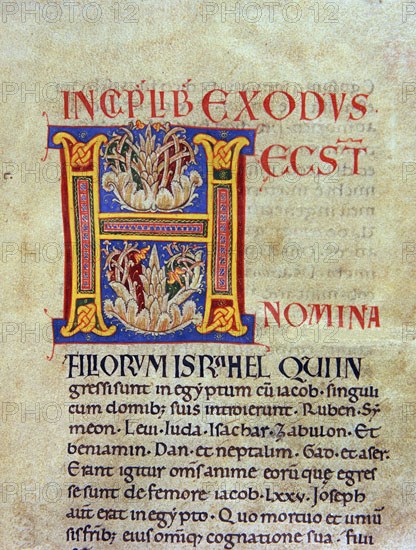 INCP LIB EXODVS
HEC ST
NOMINA
FILIORVM ISRAHEL QUI IN
gressi sunt in egyptum cū iacob · singuli
cum domib; suis introierunt · Ruben · Sy
meon · Leui · Iuda · Isachar · Zabulon · Et
beniamin · Dan · et neptalim · Gad · et aser ·
Erant igitur om̄s animę eorū quę egres
sę sunt de femore iacob · LXXV · Ioseph
aut̄ erat in egypto · Quo mortuo et uniuer
sis frib; eius om̄iq; cognatione sua · filii
PHOTO12